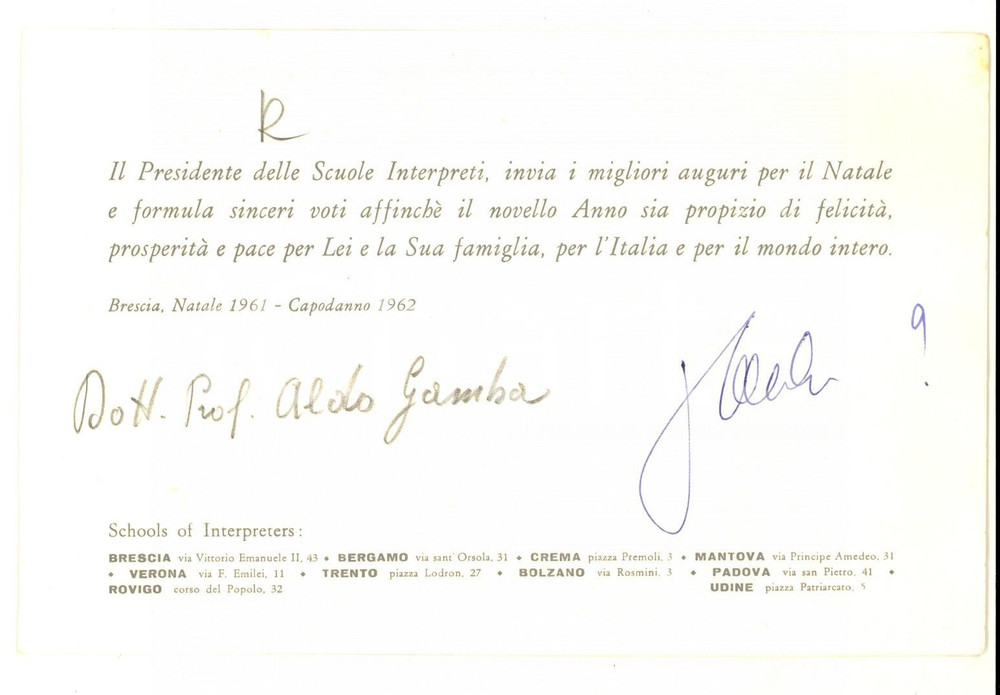 R
Il Presidente delle Scuole Interpreti, invia i migliori auguri per il Natale
e formula sinceri voti affinchè il novello Anno sia propizio di felicità,
prosperità e pace per Lei e la Sua famiglia, per l'Italia e per il mondo intero.
Brescia, Natale 1961 - Capodanno 1962
Dott. Prof. Aldo Gamba
Schools of Interpreters:
BRESCIA via Vittorio Emanuele II, 43 • BERGAMO via sant' Orsola, 31 • CREMA piazza Premoli, 3 • MANTOVA via Principe Amedeo, 31
• VERONA via F. Emilei, 11 • TRENTO piazza Lodron, 27 • BOLZANO via Rosmini, 3 • PADOVA via san Pietro, 41 •
ROVIGO corso del Popolo, 32 UDINE piazza Patriarcato, 5